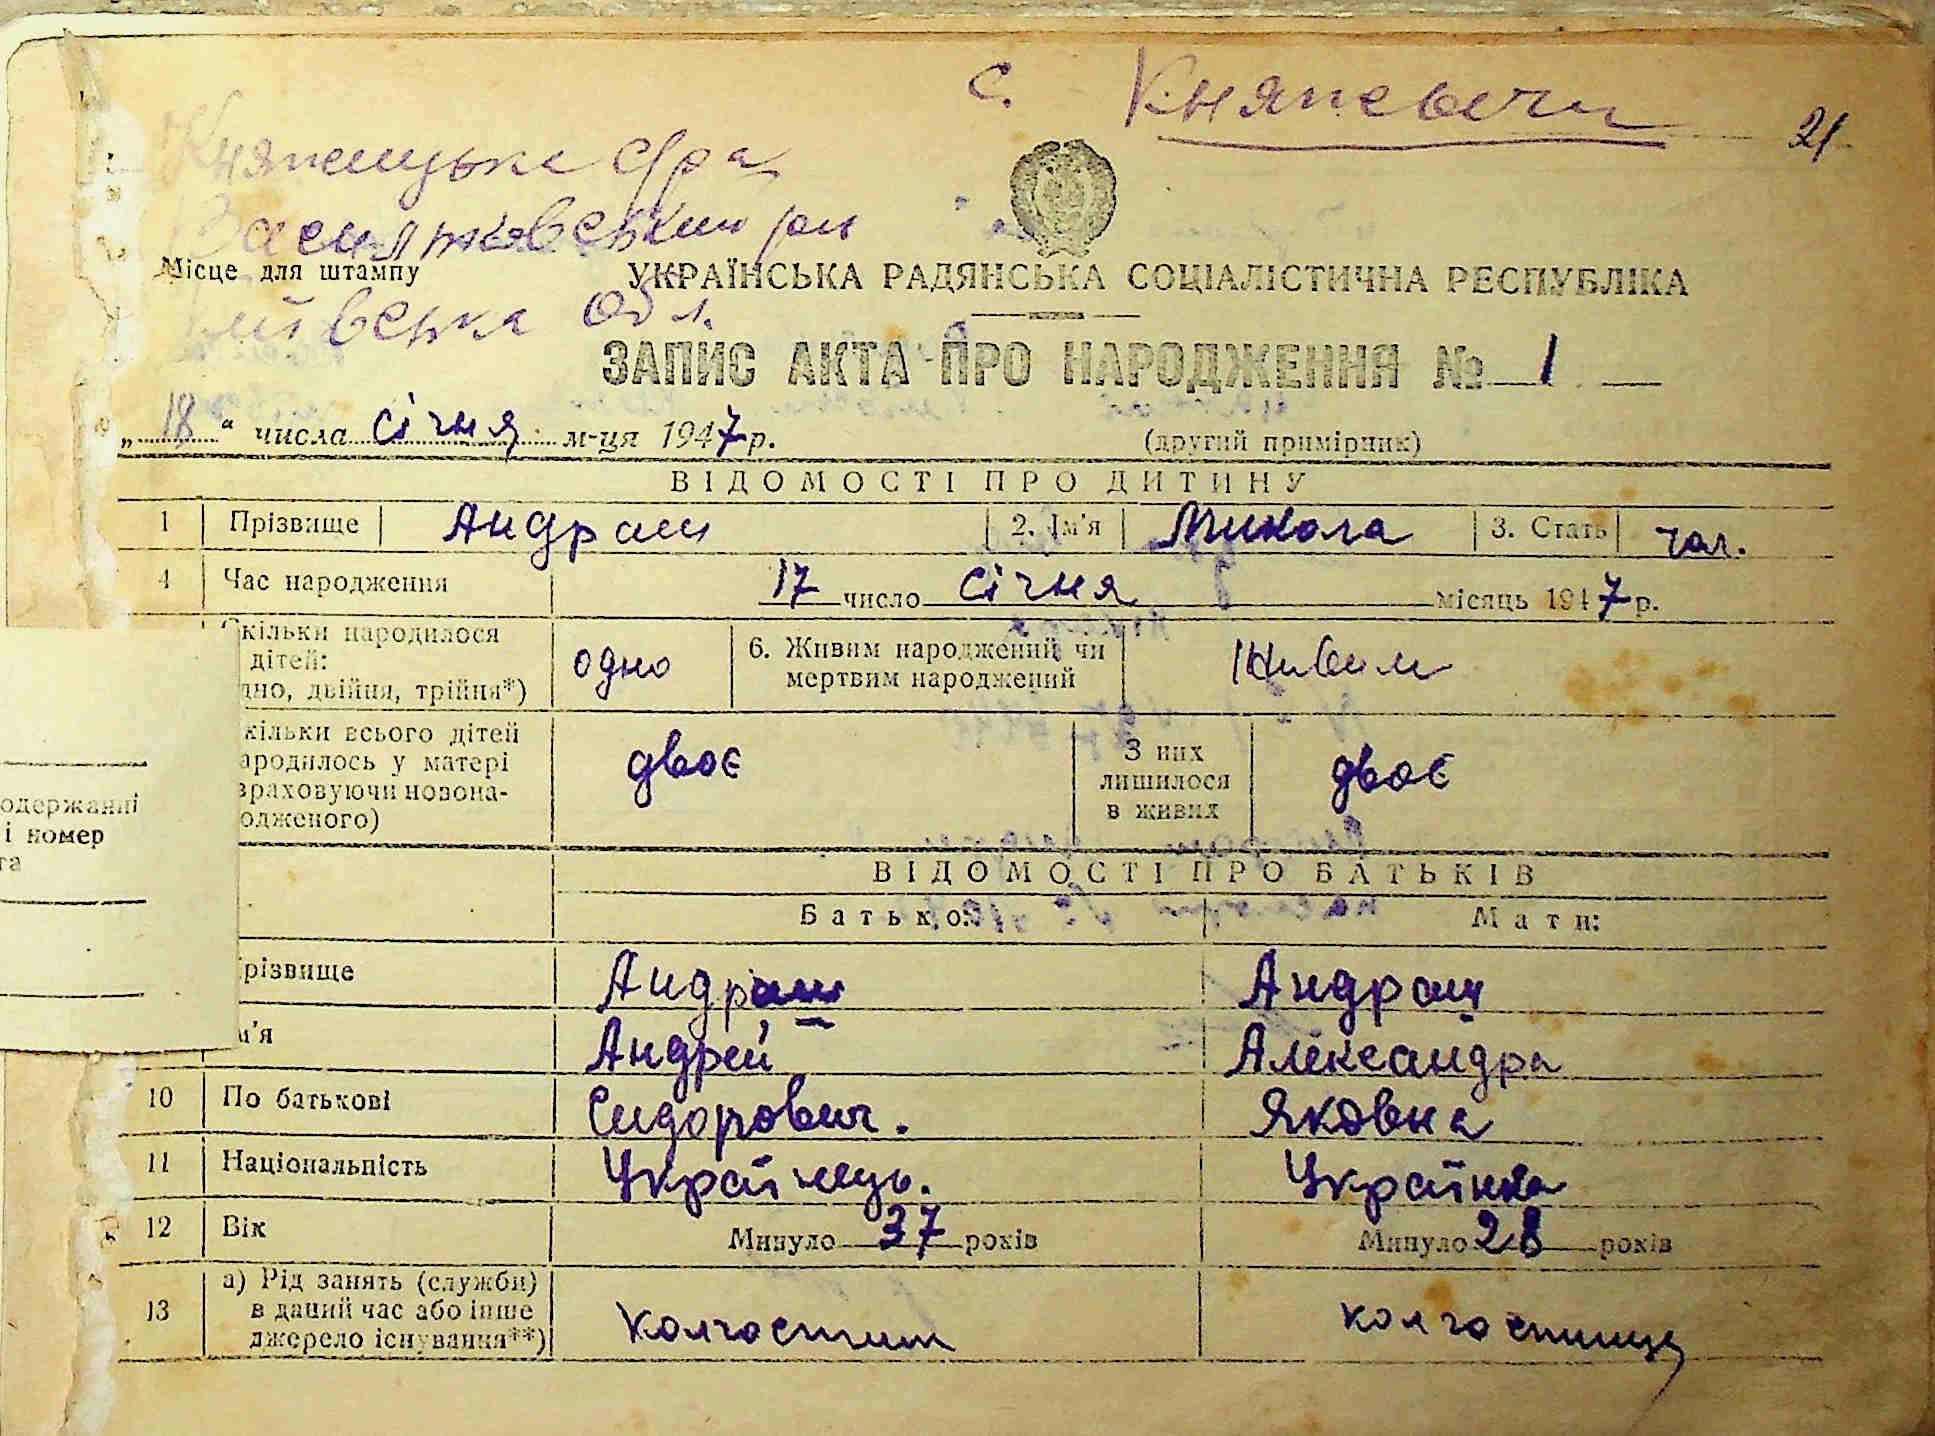 с. Княжевичи
21
Княжицька с/ра
Васильковський р-н
Місце для штампу
УКРАЇНСЬКА РАДЯНСЬКА СОЦІАЛІСТИЧНА РЕСПУБЛІКА
Київська обл.
ЗАПИС АКТА ПРО НАРОДЖЕННЯ № 1
„18“ числа січня м-ця 1947 р.
(другий примірник)
ВІДОМОСТІ ПРО ДИТИНУ
1 Прізвище Андращ 2. Ім'я Микола 3. Стать чол.
4 Час народження 17 число січня місяць 1947 р.
кільки народилося дітей: дно, двійня, трійня*) одно 6. Живим народжений чи мертвим народжений Живим
кільки всього дітей ародилось у матері враховуючи новона- одженого) двоє З них лишилося в живих двоє
одержанні
і номер
та
ВІДОМОСТІ ПРО БАТЬКІВ
Батько: Мати:
різвище Андращ Андращ
м'я Андрей Александра
10 По батькові Сидорович. Яковна
11 Національність Українець. Українка
12 Вік Минуло 37 років Минуло 28 років
13 а) Рід занять (служби) в даний час або інше джерело існування**) колгоспник колгоспниця